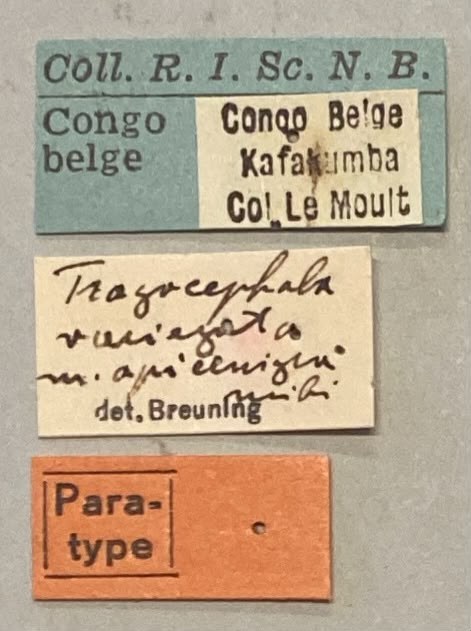 Coll. R. I. Sc. N. B.
Congo
belge
Congo Belge
Kafakumba
Col. Le Moult
Tragocephala
variegata
m. apicenigra
mihi
det. Breuning
Para-
type